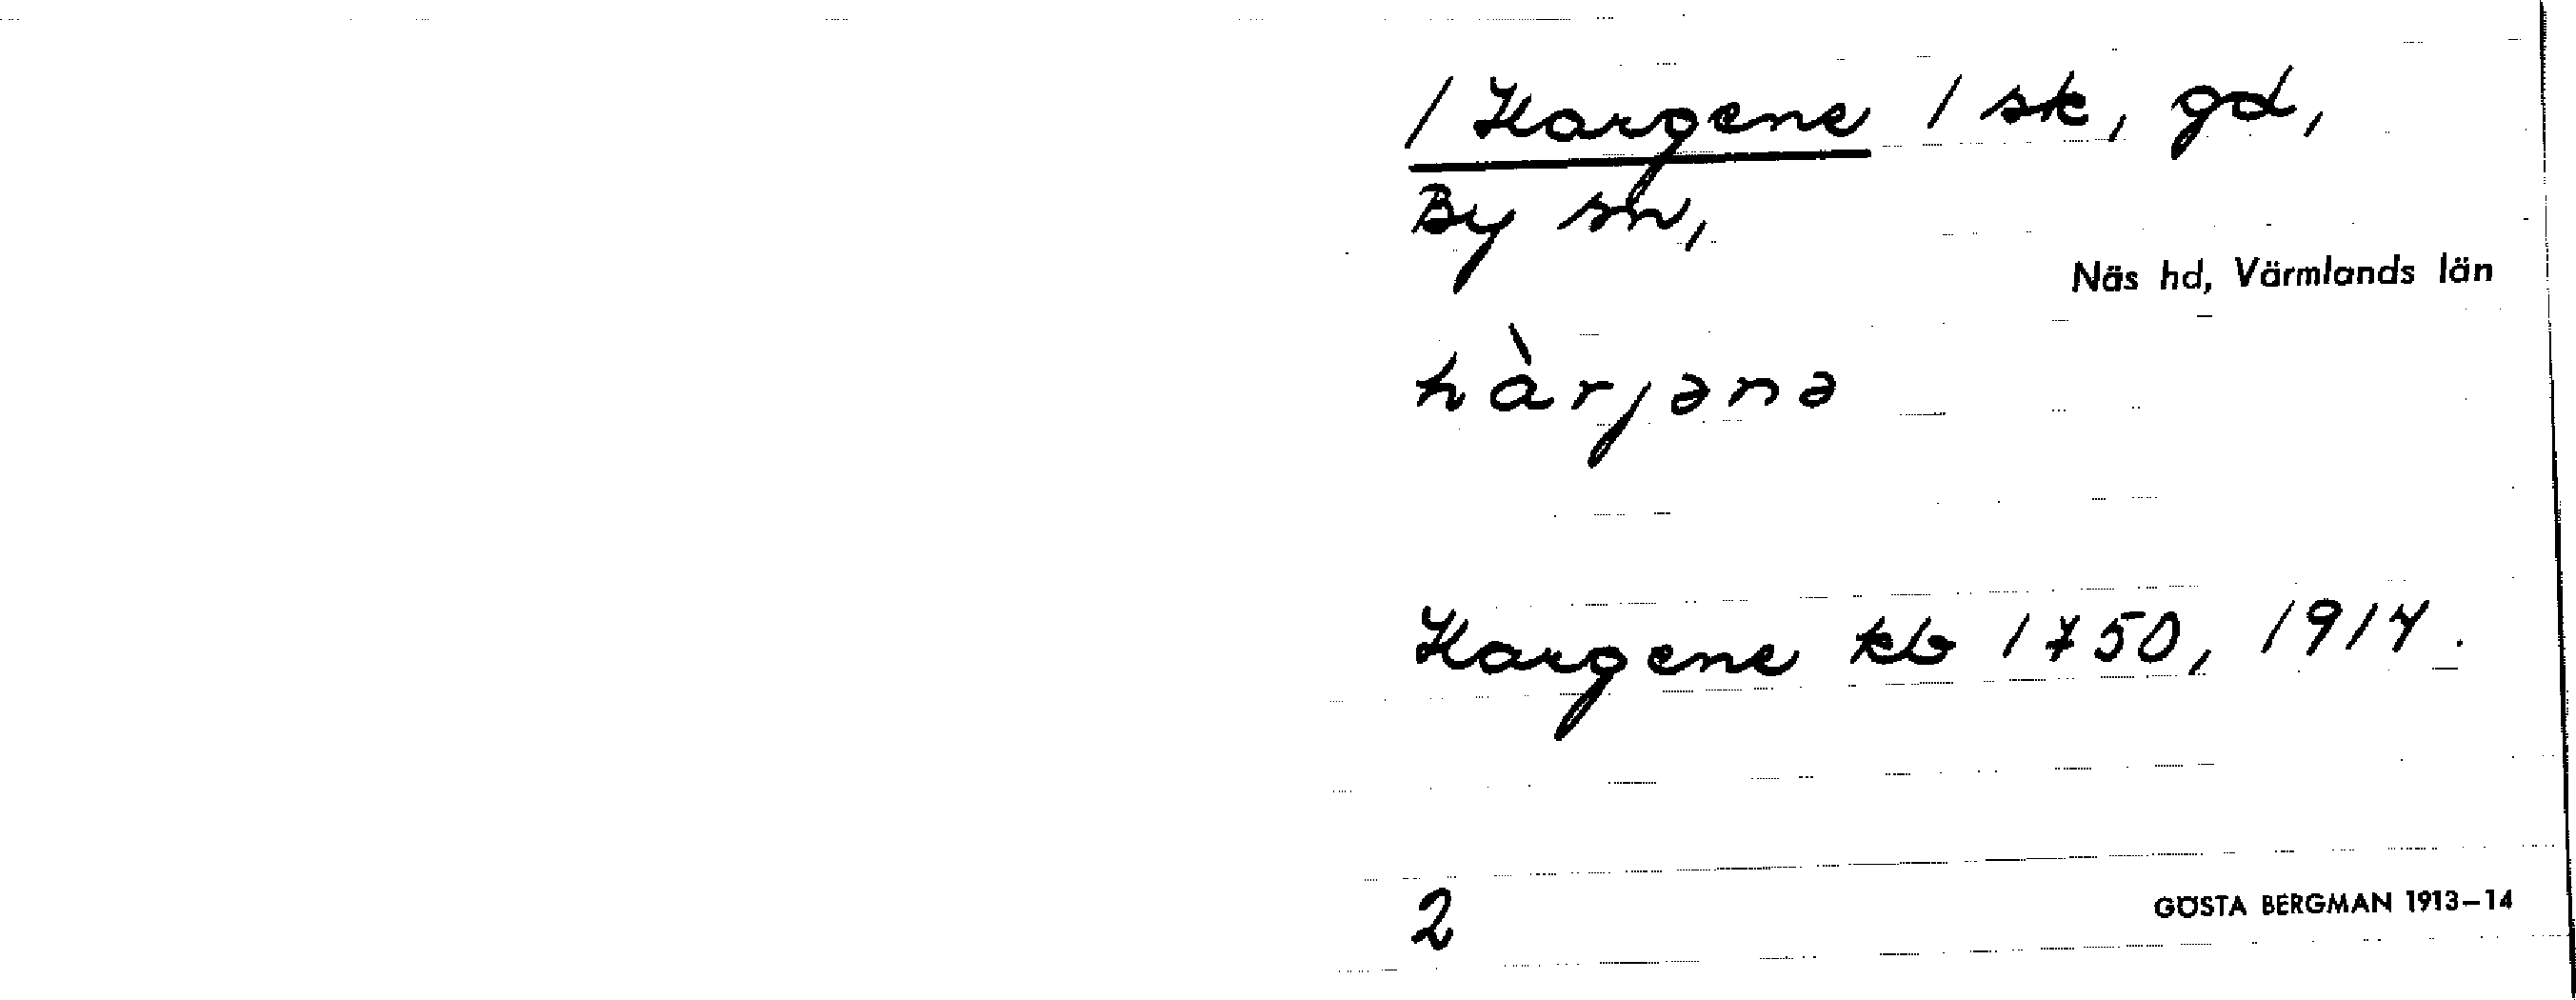 / Hargene / sk, gd,
By sn,
Näs hd, Värmlands län
hàrjənə
Hargene kb 1750, 1914.
2
GÖSTA BERGMAN 1913–14